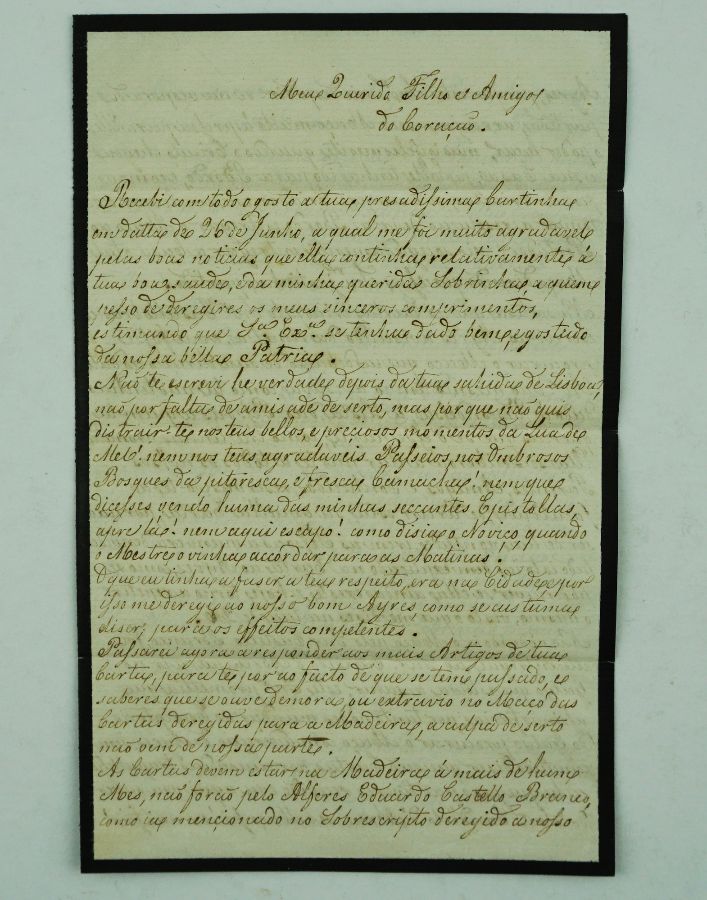 Meu Querido Filho e Amigo
do Coração.
Recebi com todo o gosto a tua presadissima Cartinha
em datta de 26 de Junho, a qual me foi muito agradavel
pelas boas noticias que ella continha relativamente á
tua boa saude, e da minha querida Sobrinha a quem
pesso de deregires os meus sinceros comprimentos,
estimando que S.ª Ex.ª se tenha dado bem, e gostado
da nossa bélla Patria.
Não te escrevi he verdade depois da tua sahida de Lisboa,
não por falta de amisade de serto, mas porque não quis
distrair-te nos teus bellos, e preciosos momentos da Lua de
Mel! nem nos teus agradaveis Passeios, nos Ombrosos
Bosques da pitoresca, e fresca Camacha! nem que
dicesses vendo huma das minhas seccantes Epistollas,
apre lá! nem aqui escapo! como disia o Noviço, quando
o Mestre o vinha accordar para as Matinas!
O que eu tinha a faser a teu respeito, era na Cidade, e por
isso me deregi ao nosso bom Ayres, como se custuma
diser, para os effeitos competentes.
Passarei agora a responder aos mais Artigos de tua
Carta, para te por ao facto de que se tem passado, e
saberes que se ouve demora, ou extravio no Maço das
Cartas deregidas para a Madeira, a culpa de serto
não vem de nossa parte.
As Cartas devem estar na Madeira á mais de hum
Mes, não forão pelo Alferes Eduardo Castello Branco,
como ia mencionado no Sobrescripto deregido a nosso